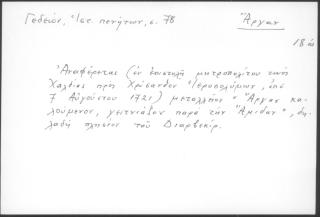 Γεδεών, Ἱστ. πενήτων, σ. 78
Ἄργαν
18 ος
Ἀναφέρεται (ἐν ἐπιστολῇ μητροπολίτου τινὸς
Χαλδίας πρὸς Χρύσανθον Ἱεροσολύμων, ἀπὸ
7 Αὐγούστου 1721) μεταλλεῖον " Ἄργαν κα-
λούμενον, γειτνιάζον παρὰ τὴν Ἄμιδαν", δη-
λαδὴ πλησίον τοῦ Διαρβεκίρ.